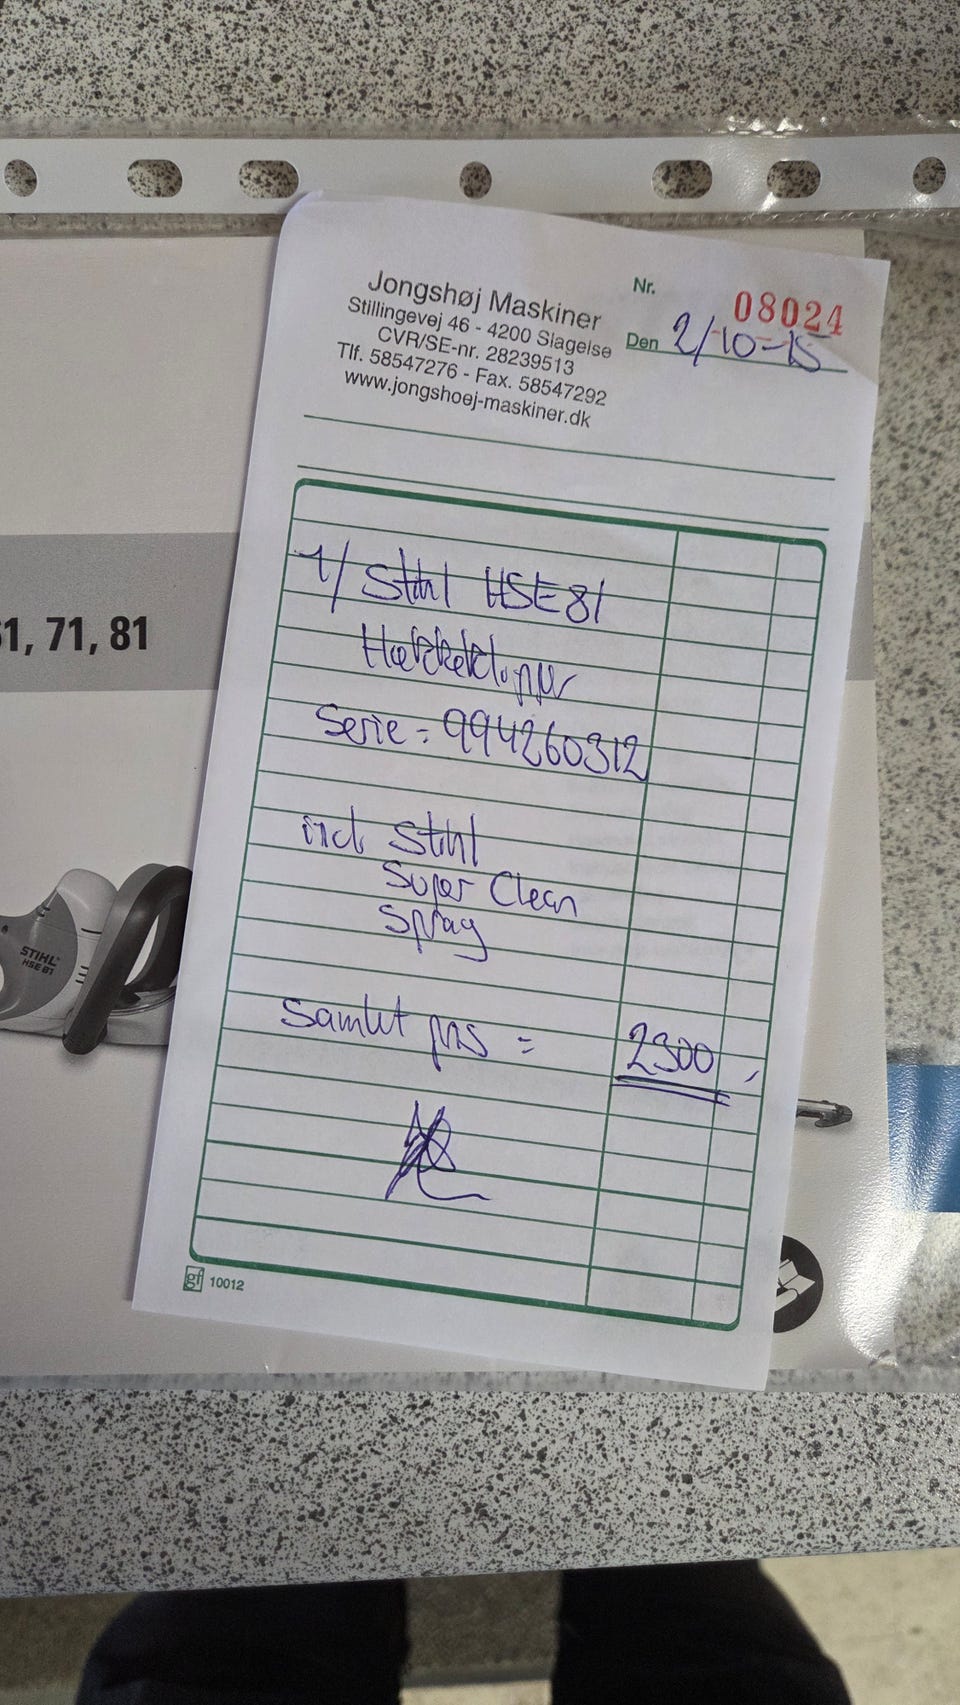 Jongshøj Maskiner
Stillingevej 46 - 4200 Slagelse
CVR/SE-nr. 28239513
Tlf. 58547276 - Fax. 58547292
www.jongshoej-maskiner.dk
Nr. 08024
Den 2/10-15
1/ Stihl HSE 81
Hækkeklipper
Serie = 994260312
incl Stihl
Super Clean
Spray
Samlet pris = 2300,
gf 10012
61, 71, 81
STIHL
HSE 81